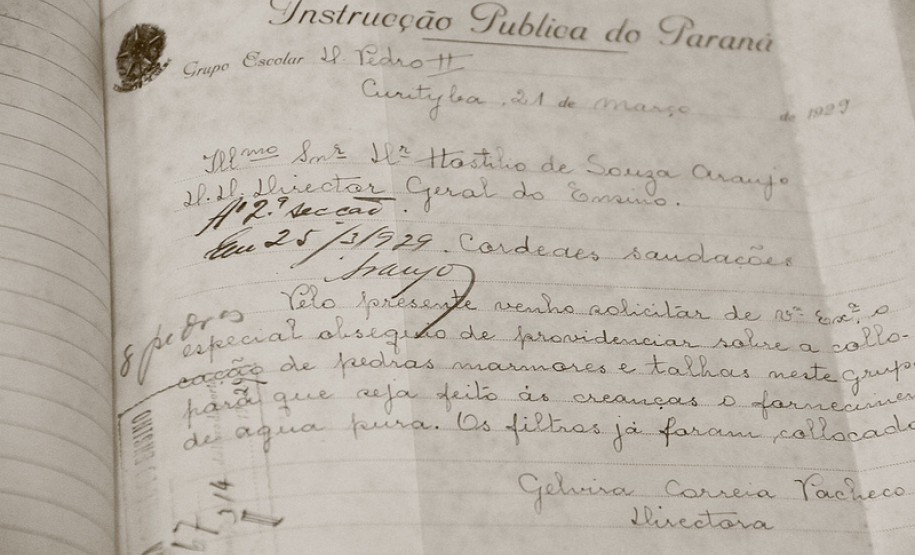 Instrucção Publica do Paraná
Grupo Escolar D. Pedro II
Curityba, 21 de março de 1929
Illmo Snr Dr Hostilio de Souza Araujo
D. D. Director Geral do Ensino.
A' 2ª secção.
Em 25/3/929. Cordeaes saudações
Araujo
Pelo presente venho solicitar de Vª Exª o
8 pedras
especial obsequio de providenciar sobre a collo-
cação de pedras marmores e talhas neste grupo
para que seja feito ás creanças o fornecimen
de agua pura. Os filtros já foram collocado
ENSINO
Gelvira Correia Pacheco
Directora
67
3/4